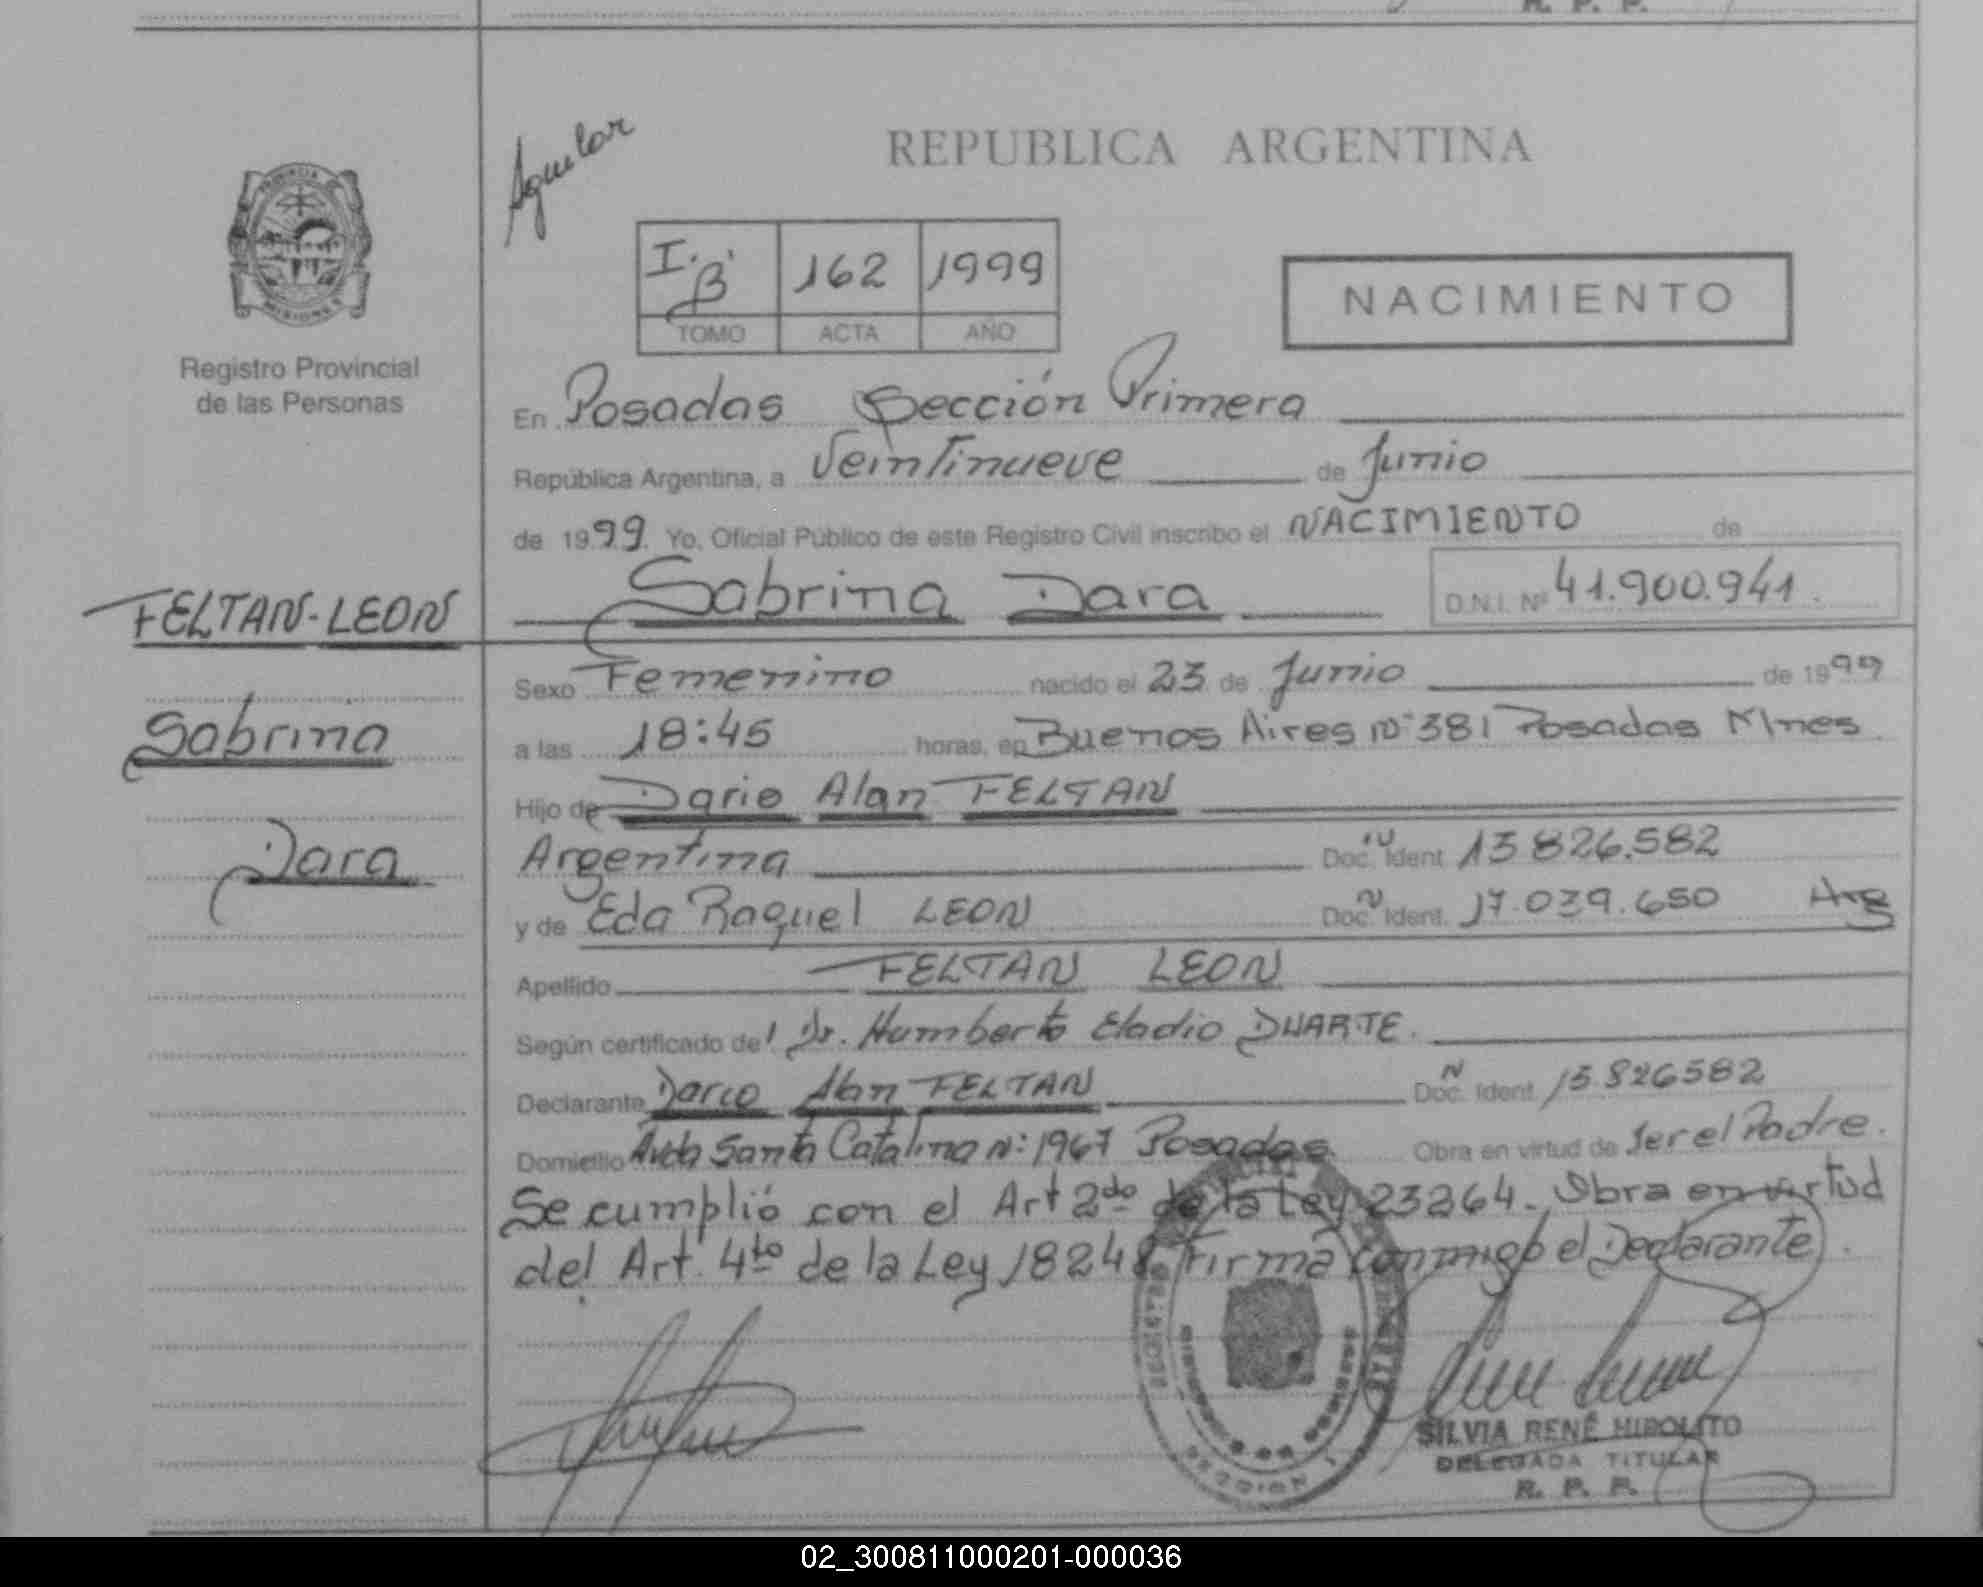 R. P. P.
Aguilar
REPUBLICA ARGENTINA
I. B 162 1999
TOMO ACTA AÑO
NACIMIENTO
PROVINCIA DE
MISIONES
Registro Provincial
de las Personas
En Posadas Sección Primera
República Argentina, a Veintinueve de Junio
de 1999. Yo, Oficial Público de este Registro Civil inscribo el NACIMIENTO de
Sabrina Dara D.N.I. Nº 41.900.941.
FELTAN-LEON
Sabrina
Dara
Sexo Femenino nacido el 23 de Junio de 1999
a las 18:45 horas, en Buenos Aires Nº 381 Posadas Mnes.
Hijo de Dario Alan FELTAN
Argentina Doc. N Ident 13 826.582
y de Eda Raquel LEON Doc. N Ident. 17.039.650 Arg
Apellido FELTAN LEON
Según certificado del Dr. Humberto Eladio DUARTE.
Declarante Dario Alan FELTAN Doc. N Ident. 13.826582
Domicilio Avda Santa Catalina N: 1967 Posadas. Obra en virtud de Ser el Padre.
Se cumplió con el Art 2do de la Ley 23264. Obra en virtud
del Art. 4to de la Ley 18248. Firma conmigo el Declarante.
SILVIA RENÉ HIPOLITO
DELEGADA TITULAR
R. P. P.
SECCION 1
02_300811000201-000036